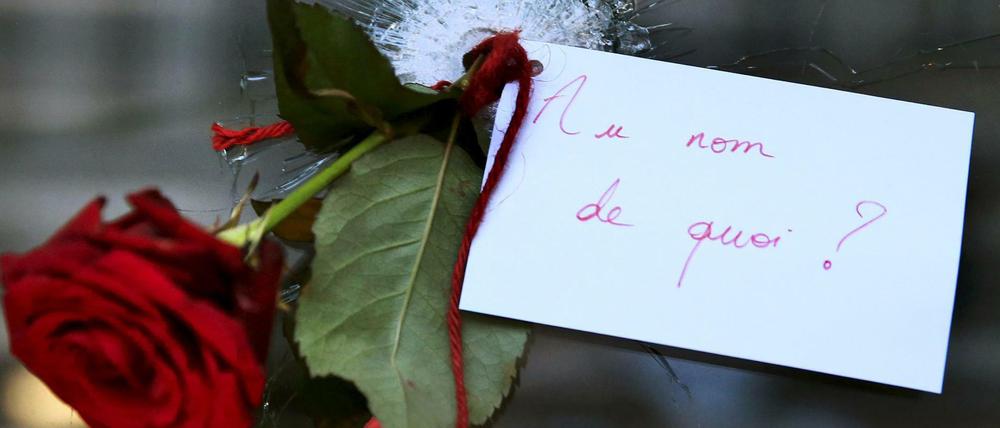 Au nom
de quoi ?